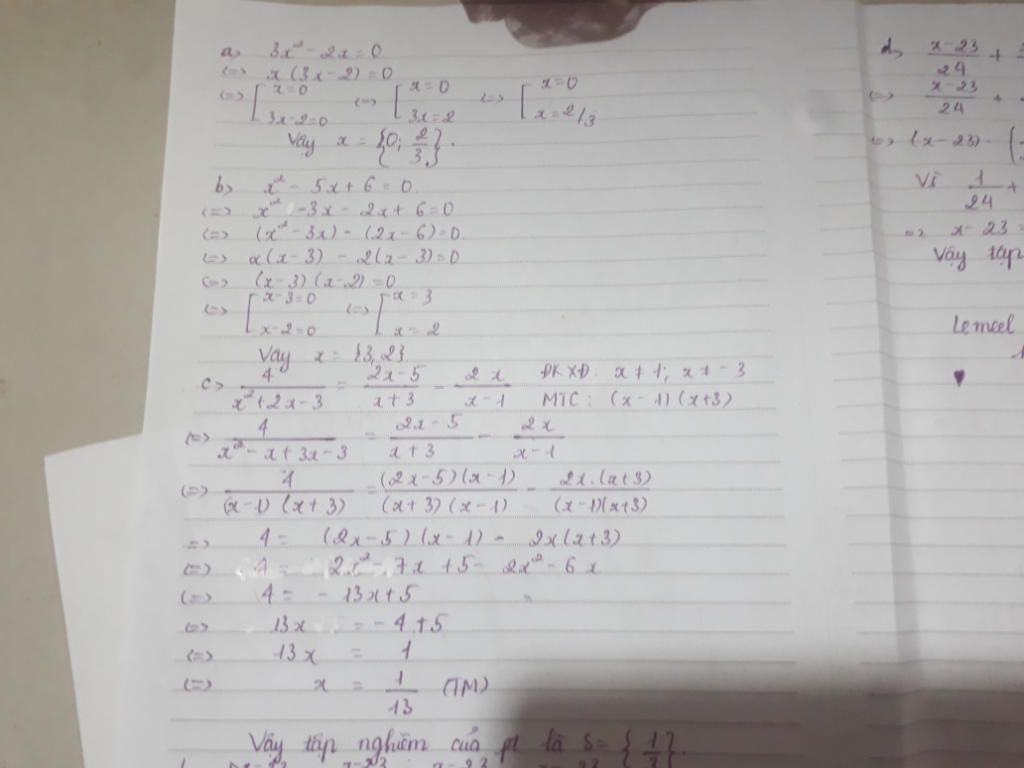 a) 3x² - 2x = 0
<=> x(3x-2) = 0
<=> [x=0; 3x-2=0 <=> [x=0; 3x=2 <=> [x=0; x=2/3
Vậy x = {0; 2/3}.
b) x² - 5x + 6 = 0
<=> x² - 3x - 2x + 6 = 0
<=> (x² - 3x) - (2x - 6) = 0
<=> x(x-3) - 2(x-3) = 0
<=> (x-3)(x-2) = 0
<=> [x-3=0; x-2=0 <=> [x=3; x=2
Vậy x = {3,2}.
c) 4/(x²+2x-3) = (2x-5)/(x+3) - 2x/(x-1) ĐKXĐ: x ≠ 1; x ≠ -3
MTC: (x-1)(x+3)
<=> 4/(x²-x+3x-3) = (2x-5)/(x+3) - 2x/(x-1)
<=> 4/((x-1)(x+3)) = (2x-5)(x-1)/((x+3)(x-1)) - 2x.(x+3)/((x-1)(x+3))
=> 4 = (2x-5)(x-1) - 2x(x+3)
<=> 4 = 2x² - 7x + 5 - 2x² - 6x
<=> 4 = -13x + 5
<=> 13x = -4 + 5
<=> 13x = 1
<=> x = 1/13 (TM)
Vậy tập nghiệm của pt là S = {1/3}.
d) (x-23)/24 +
<=> (x-23)/24 +
<=> (x-23).(
Vì 1/24 +
=> x-23 =
Vậy tập